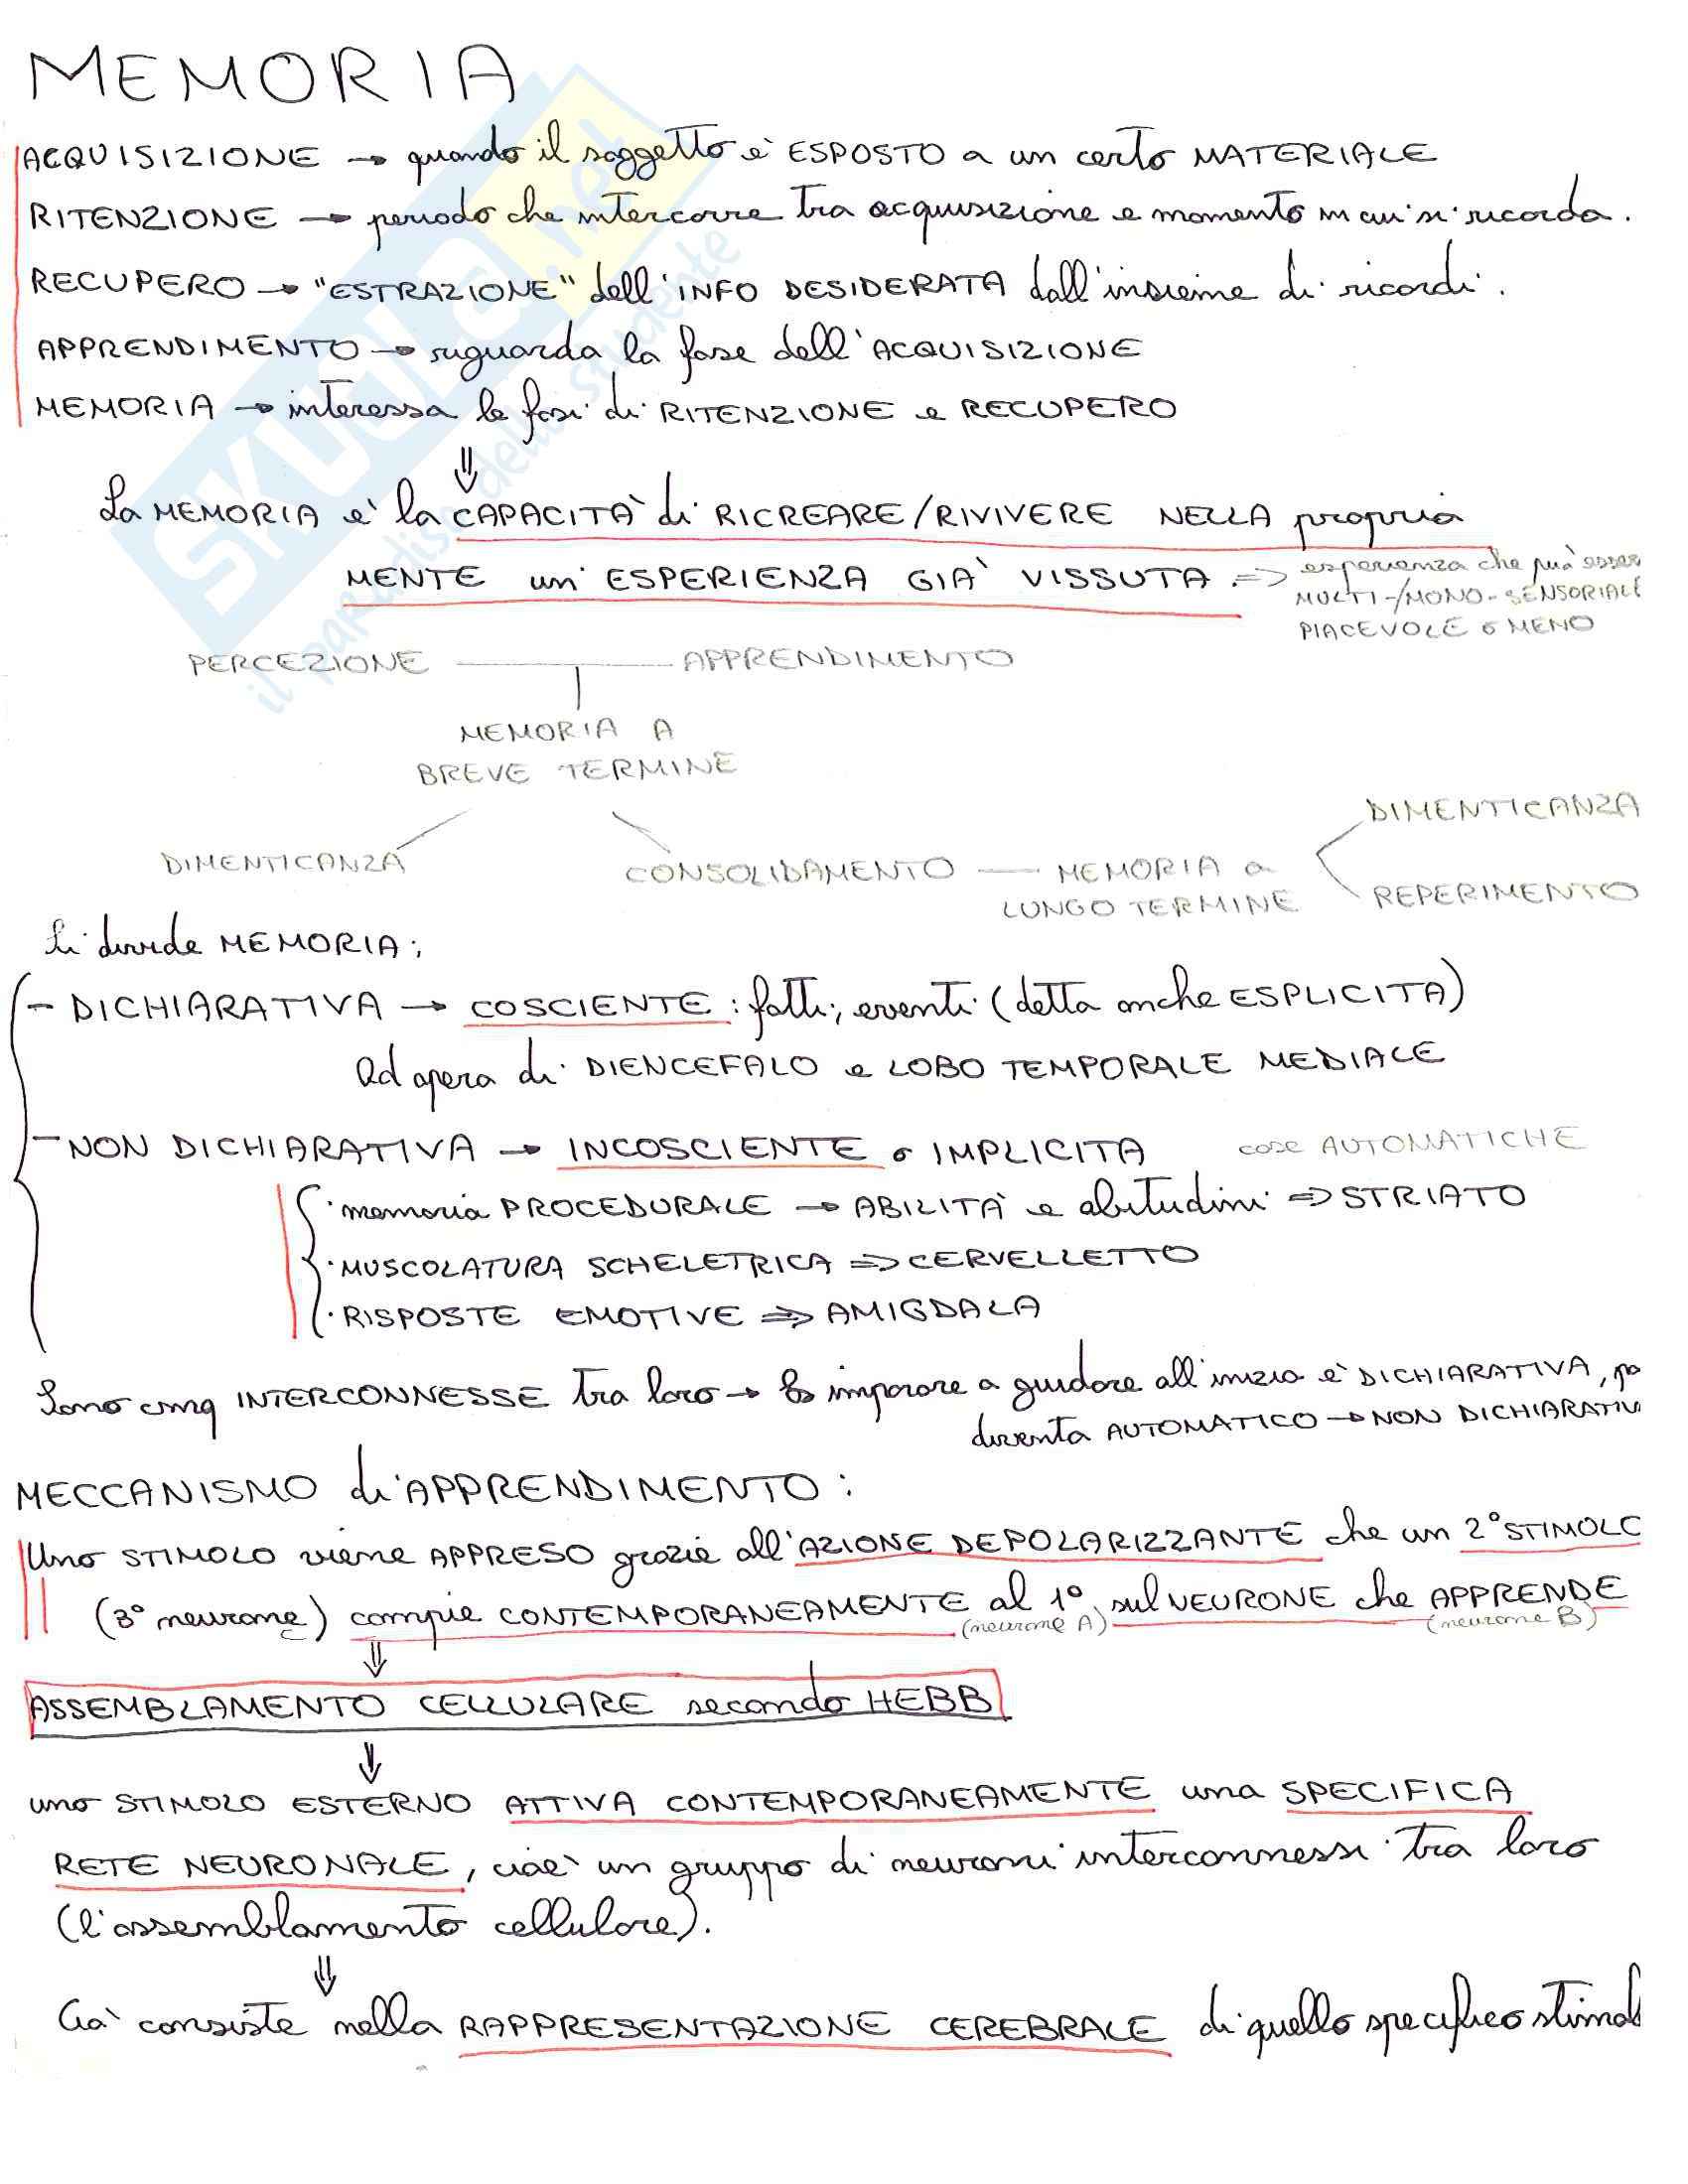 MEMORIA
ACQUISIZIONE → quando il soggetto è ESPOSTO a un certo MATERIALE
RITENZIONE → periodo che intercorre tra acquisizione e momento in cui si ricorda.
RECUPERO → "ESTRAZIONE" dell'INFO DESIDERATA dall'insieme di ricordi.
APPRENDIMENTO → riguarda la fase dell'ACQUISIZIONE
MEMORIA → interessa le fasi di RITENZIONE e RECUPERO
⇓
La MEMORIA è la CAPACITÀ di RICREARE/RIVIVERE NELLA propria
MENTE un'ESPERIENZA GIÀ VISSUTA. ⇒ esperienza che può esser
MULTI-/MONO-SENSORIALE
PIACEVOLE o MENO
PERCEZIONE — APPRENDIMENTO
MEMORIA A
BREVE TERMINE
DIMENTICANZA
DIMENTICANZA CONSOLIDAMENTO — MEMORIA a
LUNGO TERMINE
REPERIMENTO
Si divide MEMORIA:
- DICHIARATIVA → COSCIENTE: fatti, eventi (detta anche ESPLICITA)
ad opera di DIENCEFALO e LOBO TEMPORALE MEDIALE
- NON DICHIARATIVA → INCOSCIENTE o IMPLICITA cose AUTOMATICHE
· memoria PROCEDURALE → ABILITÀ e abitudini ⇒ STRIATO
· MUSCOLATURA SCHELETRICA ⇒ CERVELLETTO
· RISPOSTE EMOTIVE ⇒ AMIGDALA
Sono cmq INTERCONNESSE tra loro → Es imparare a guidare all'inizio è DICHIARATIVA, po
diventa AUTOMATICO → NON DICHIARATIV
MECCANISMO di APPRENDIMENTO:
Uno STIMOLO viene APPRESO grazie all'AZIONE DEPOLARIZZANTE che un 2° STIMOLO
(3° neurone) compie CONTEMPORANEAMENTE al 1°, sul NEURONE che APPRENDE
(neurone A) (neurone B)
⇓
ASSEMBLAMENTO CELLULARE secondo HEBB
⇓
uno STIMOLO ESTERNO ATTIVA CONTEMPORANEAMENTE una SPECIFICA
RETE NEURONALE, cioè un gruppo di neuroni interconnessi tra loro
(l'assemblamento cellulare).
⇓
Ciò consiste nella RAPPRESENTAZIONE CEREBRALE di quello specifico stimol
SKUOLA.net
il paradiso dello studente